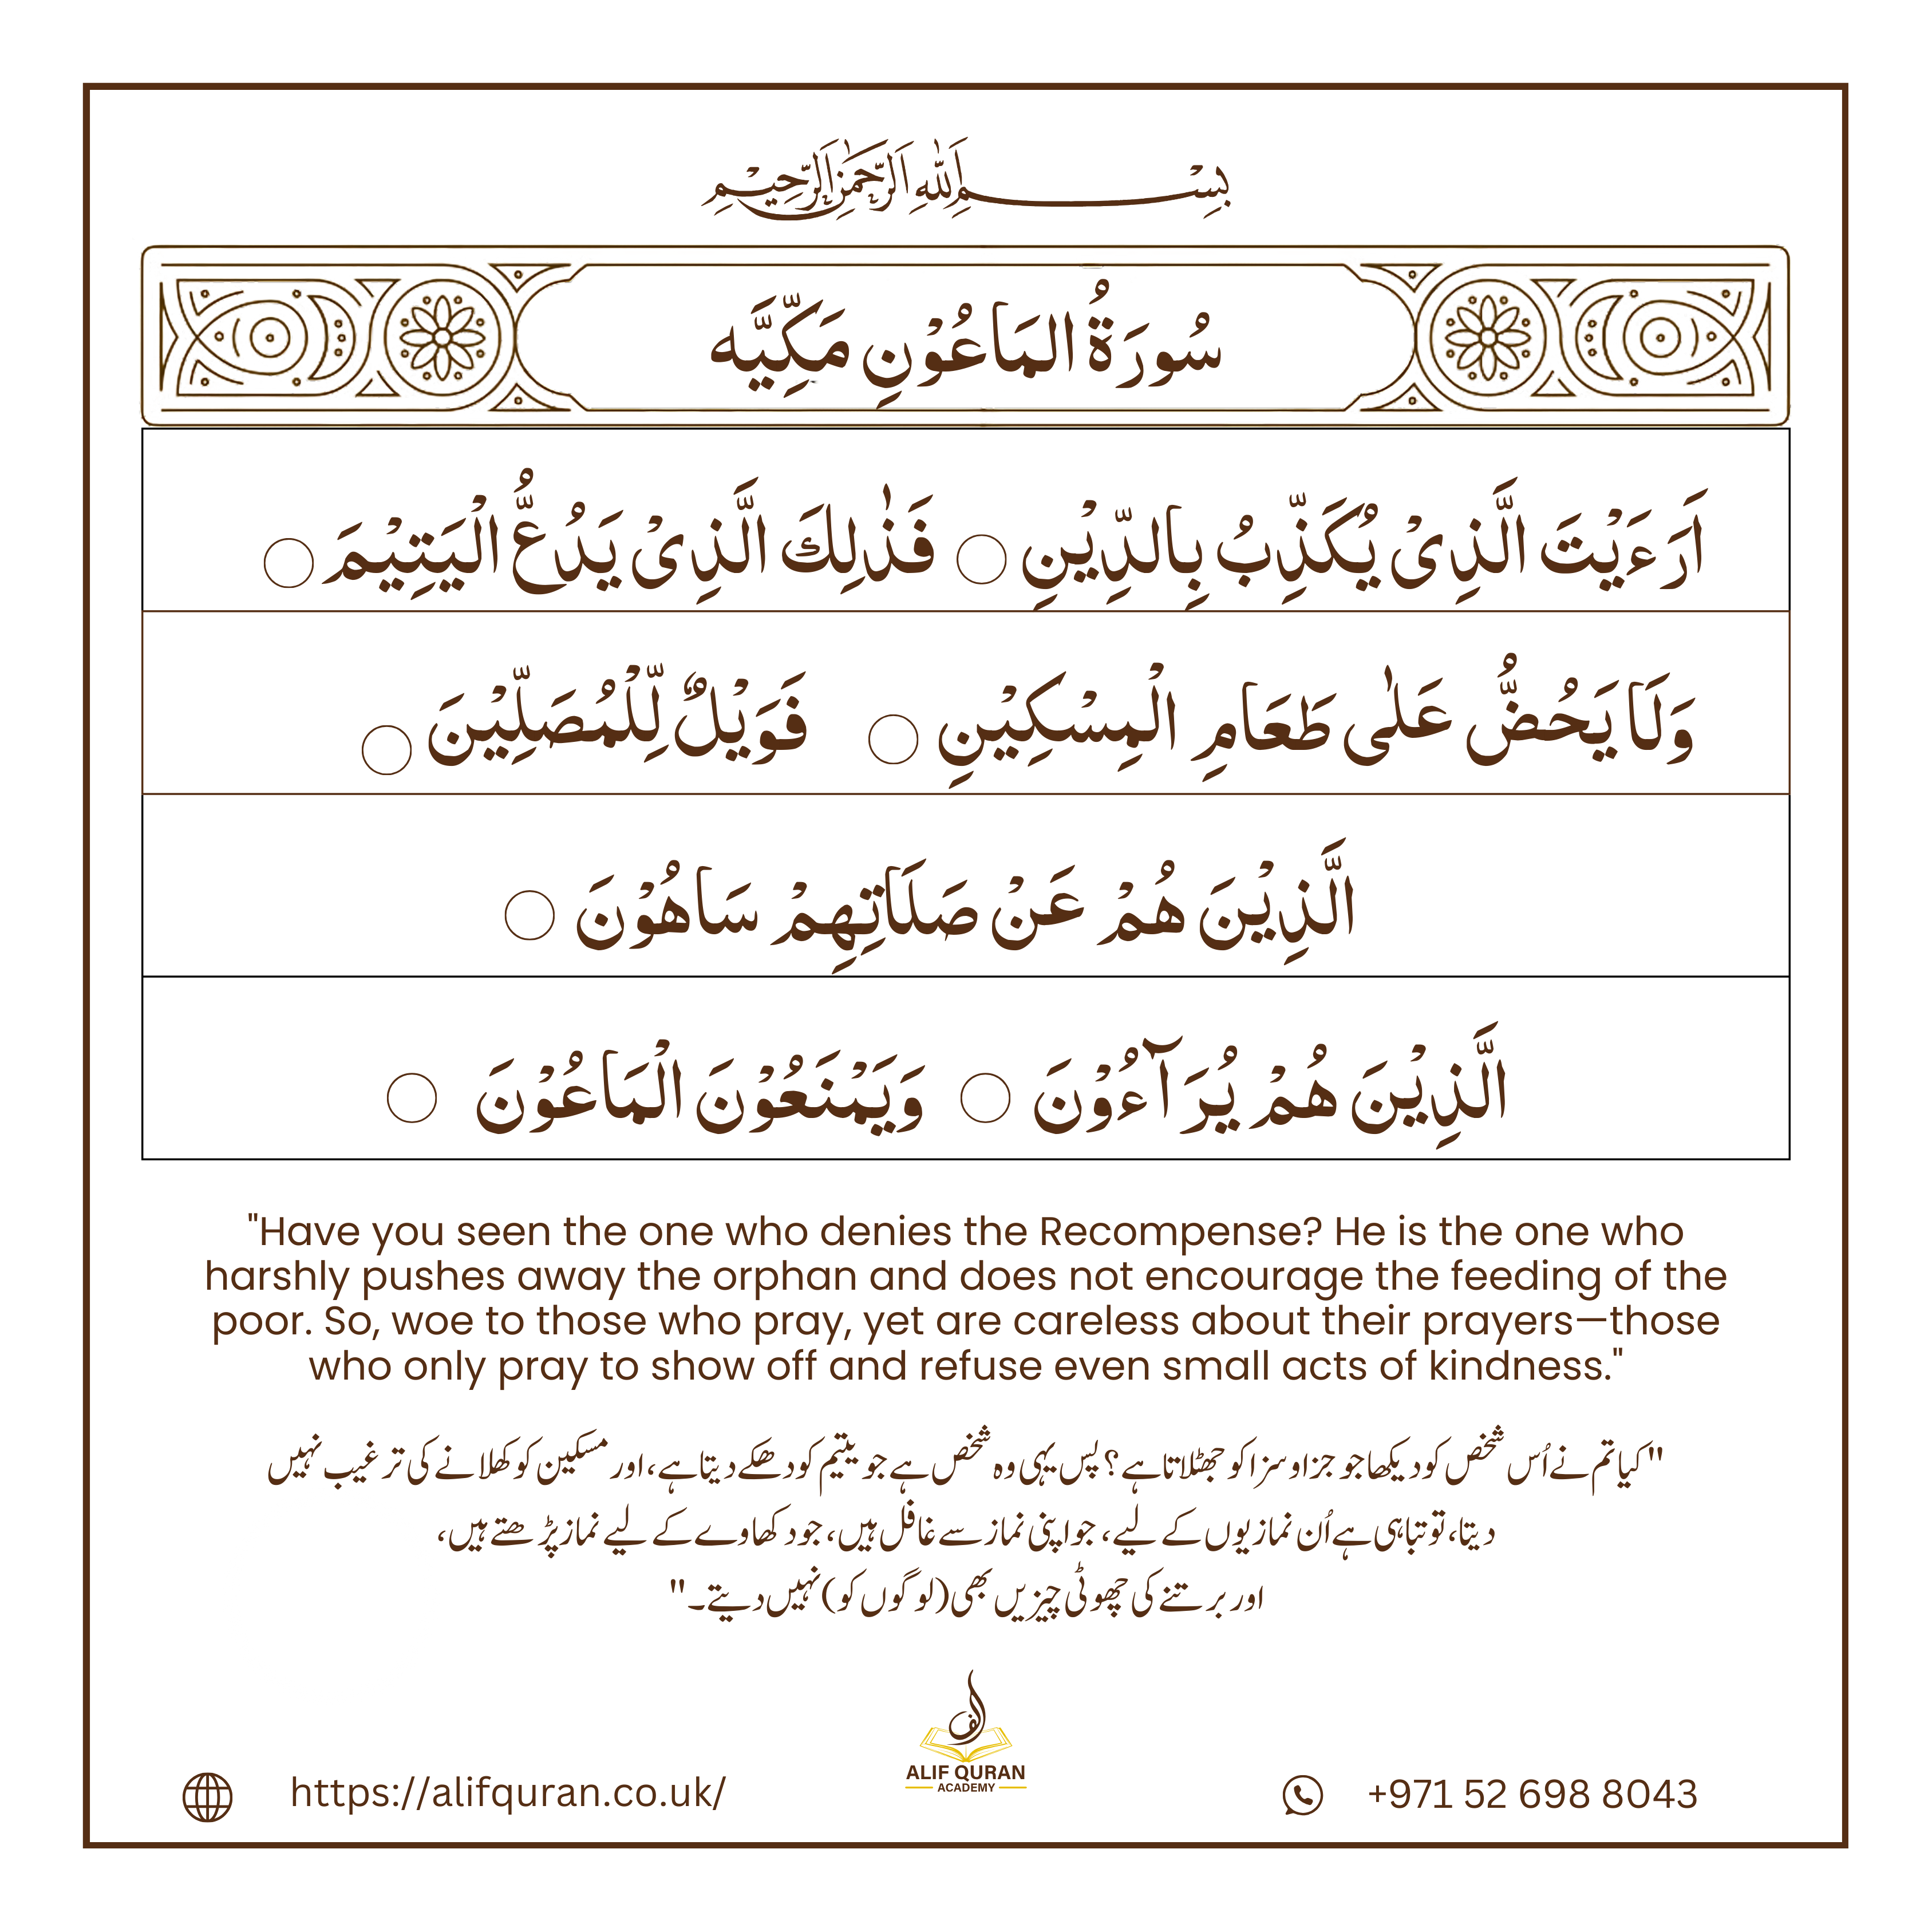 بِسْمِ اللّٰهِ الرَّحْمٰنِ الرَّحِيْمِ
سُورَةُ المَاعُوْنِ مَكِّيَّه
اَرَءَيْتَ الَّذِىْ يُكَذِّبُ بِالدِّيْنِ ○ فَذٰلِكَ الَّذِىْ يَدُعُّ الْيَتِيْمَ ○
وَلَا يَحُضُّ عَلٰى طَعَامِ الْمِسْكِيْنِ ○ فَوَيْلٌ لِّلْمُصَلِّيْنَ ○
الَّذِيْنَ هُمْ عَنْ صَلَاتِهِمْ سَاهُوْنَ ○
الَّذِيْنَ هُمْ يُرَآءُوْنَ ○ وَيَمْنَعُوْنَ الْمَاعُوْنَ ○
"Have you seen the one who denies the Recompense? He is the one who
harshly pushes away the orphan and does not encourage the feeding of the
poor. So, woe to those who pray, yet are careless about their prayers—those
who only pray to show off and refuse even small acts of kindness."
"کیا تم نے اُس شخص کو دیکھا جو جزا و سزا کو جھٹلاتا ہے؟ پس یہی وہ شخص ہے جو یتیم کو دھکے دیتا ہے، اور مسکین کو کھلانے کی ترغیب نہیں
دیتا، تو تباہی ہے اُن نمازیوں کے لیے، جو اپنی نماز سے غافل ہیں، جو دکھاوے کے لیے نماز پڑھتے ہیں،
اور برتنے کی چھوٹی چیزیں بھی (لوگوں کو) نہیں دیتے۔"
الف
ALIF QURAN
ACADEMY
https://alifquran.co.uk/
+971 52 698 8043